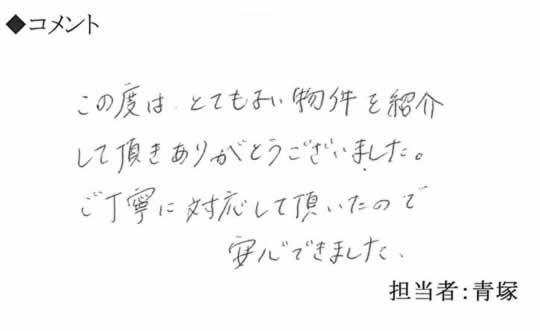 ◆コメント
この度は とてもよい物件を紹介
して頂きありがとうございました。
ご丁寧に対応して頂いたので
安心できました、
担当者：青塚